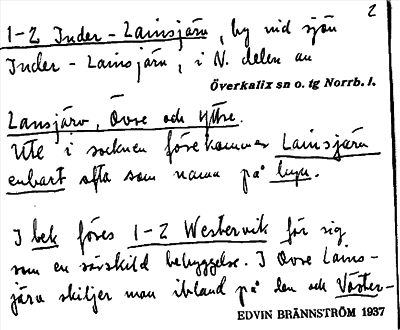 2
1-2 Inder-Lainsjärv, by vid sjön
Inder-Lainsjärv, i N. delen av
Överkalix sn o. tg Norrb. l.
Lansjärv, Övre och Yttre.
Ute i socknen förekommer Lainsjärv
enbart ofta som namn på byn.
I bek föres 1-2 Westervik för sig
som en särskild bebyggelse. I Övre Lains-
järv skiljer man ibland på den och Väster-
EDVIN BRÄNNSTRÖM 1937